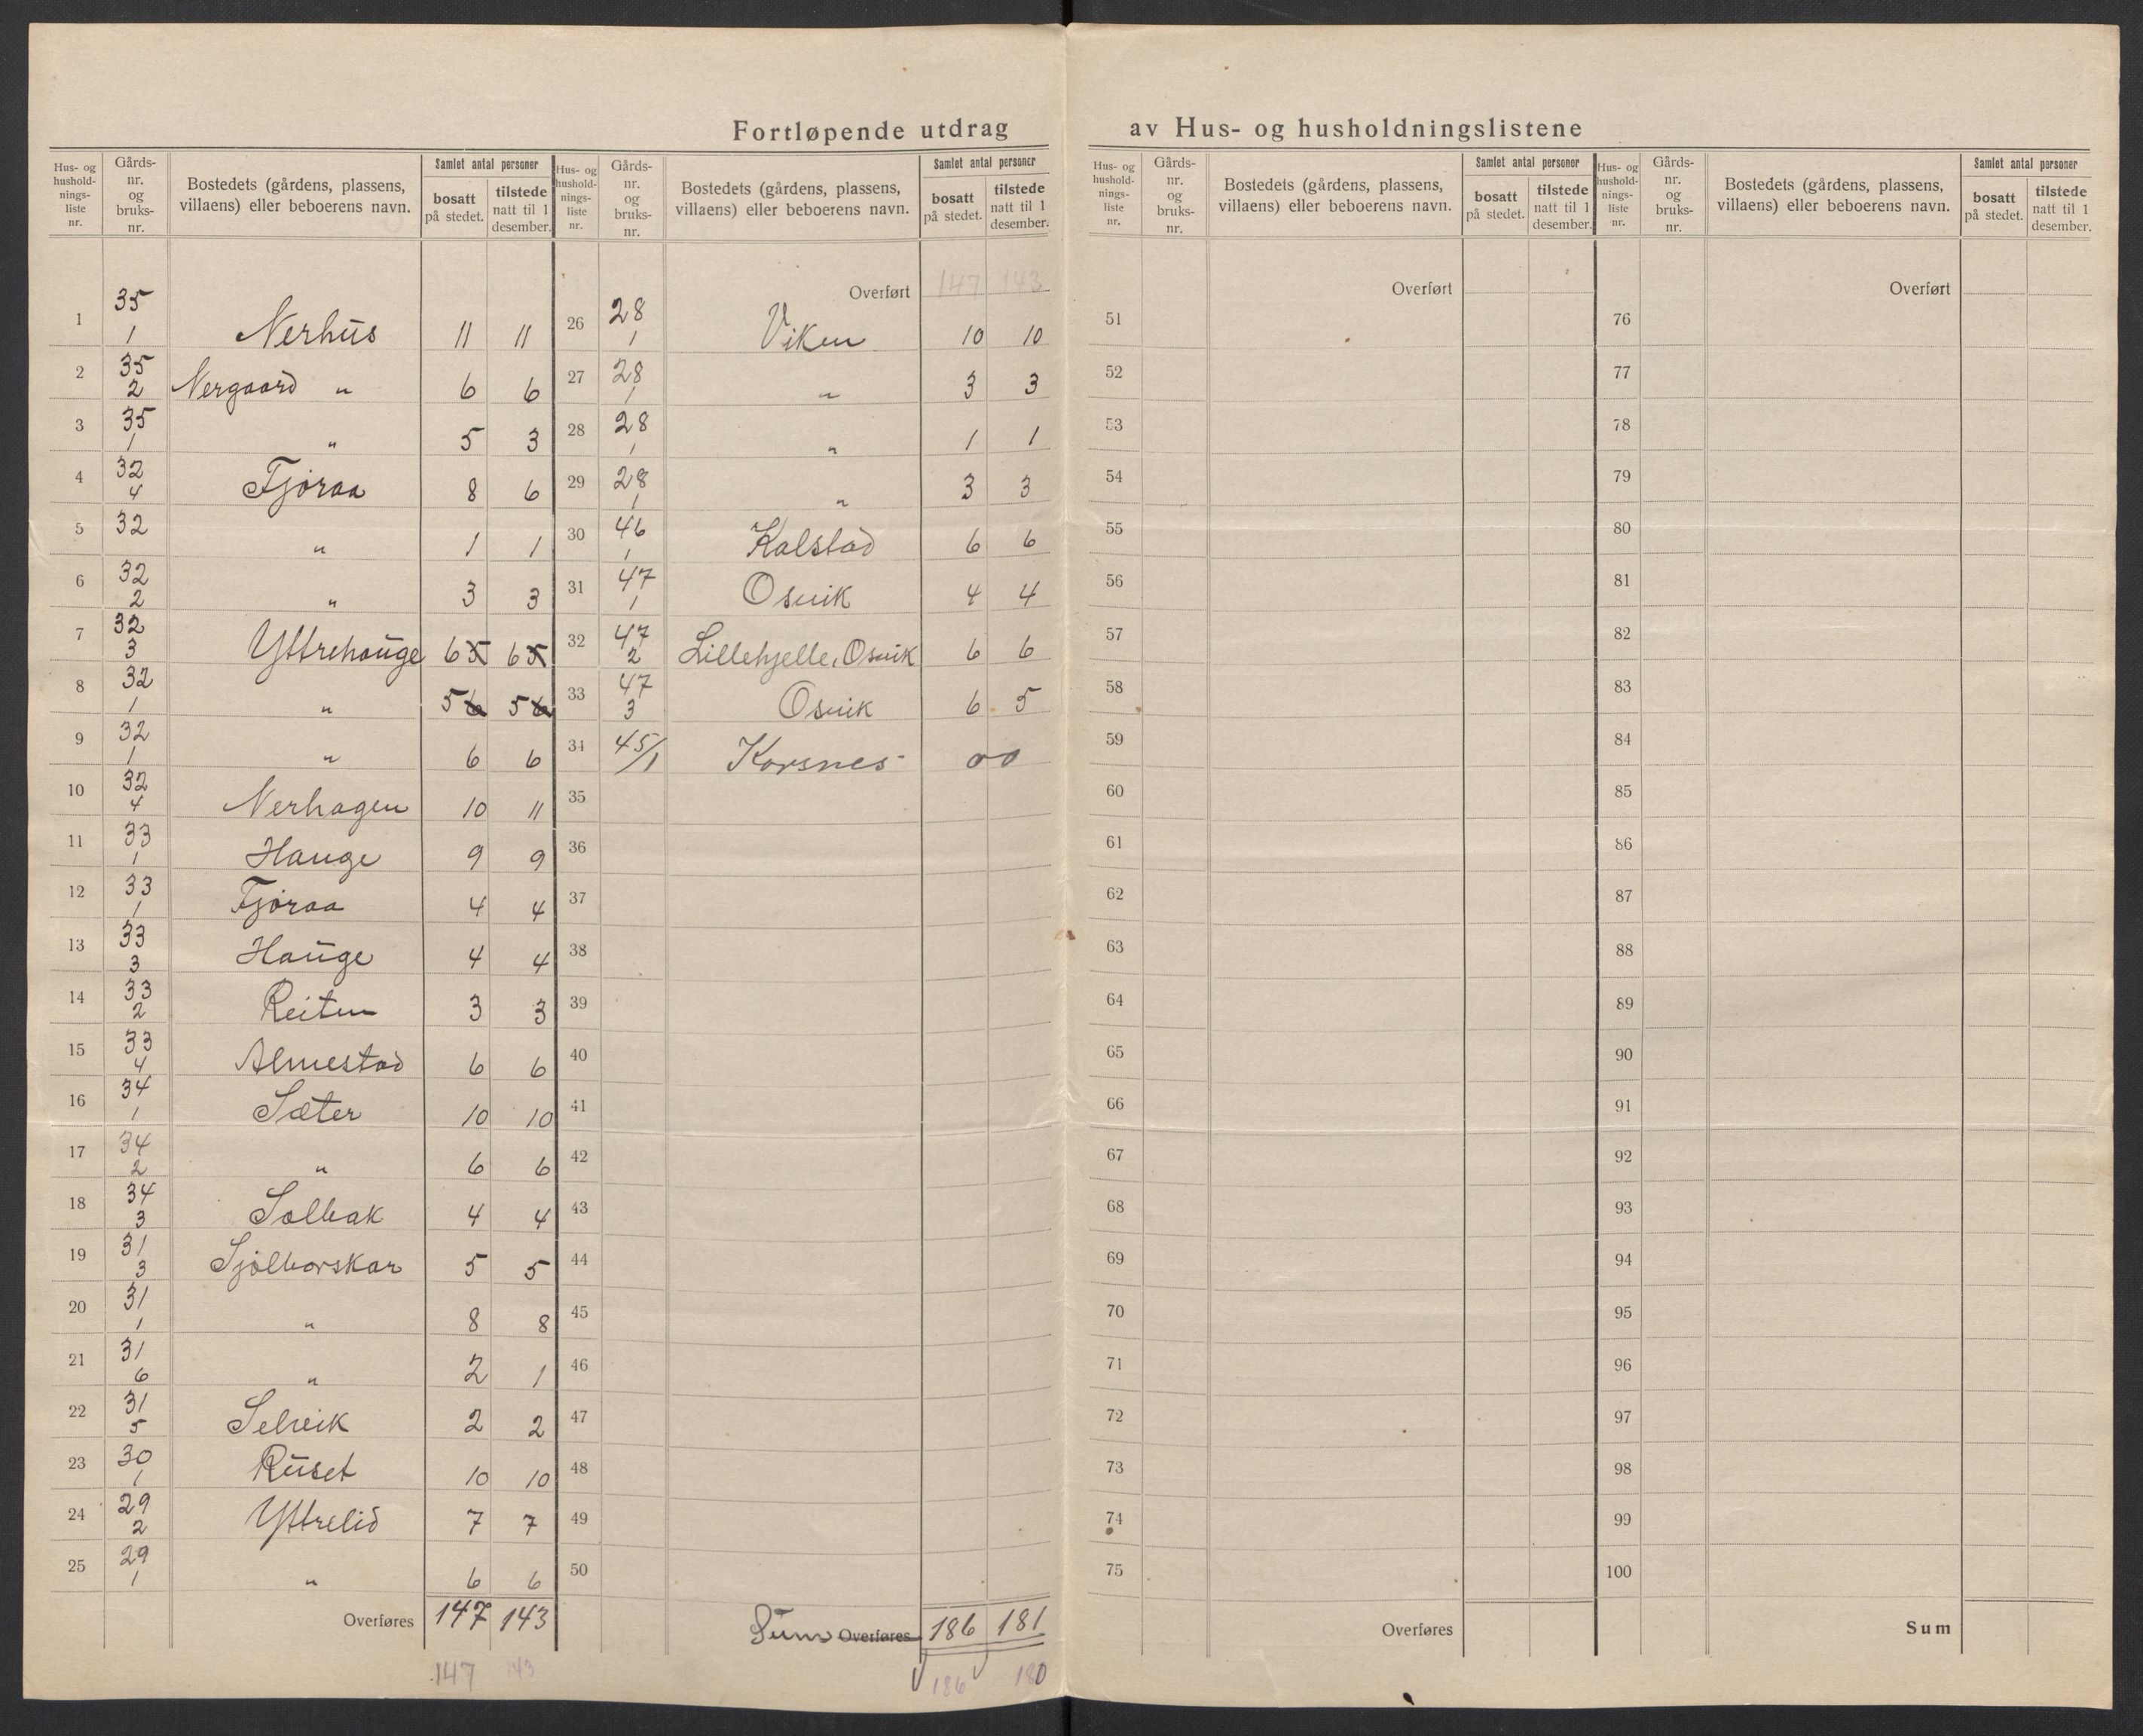 Fortløpende utdrag av Hus- og husholdningslistene
Hus- og hushold-nings-liste nr. | Gårds-nr. og bruks-nr. | Bostedets (gårdens, plassens, villaens) eller beboerens navn. | Samlet antal personer | bosatt på stedet. | tilstede natt til 1 desember.
1 | 35 1 | Nerhus | 11 | 11
2 | 35 2 | Nergaard " | 6 | 6
3 | 35 1 | " | 5 | 3
4 | 32 4 | Fjøraa | 8 | 6
5 | 32 | " | 1 | 1
6 | 32 2 | " | 3 | 3
7 | 32 3 | Yttrehauge | 6 5 | 6 5
8 | 32 1 | " | 5 6 | 5 6
9 | 32 1 | " | 6 | 6
10 | 32 4 | Nerhagen | 10 | 11
11 | 33 1 | Hauge | 9 | 9
12 | 33 1 | Fjøraa | 4 | 4
13 | 33 3 | Hauge | 4 | 4
14 | 33 2 | Reiten | 3 | 3
15 | 33 4 | Almestad | 6 | 6
16 | 34 1 | Sæter | 10 | 10
17 | 34 2 | " | 6 | 6
18 | 34 3 | Solbak | 4 | 4
19 | 31 3 | Sjølborskar | 5 | 5
20 | 31 1 | " | 8 | 8
21 | 31 6 | " | 2 | 1
22 | 31 5 | Selvik | 2 | 2
23 | 30 1 | Ruset | 10 | 10
24 | 29 2 | Yttrelid | 7 | 7
25 | 29 1 | " | 6 | 6
Overføres | 147 | 143
147 | 143
Hus- og hushold-nings-liste nr. | Gårds-nr. og bruks-nr. | Bostedets (gårdens, plassens, villaens) eller beboerens navn. | Samlet antal personer | bosatt på stedet. | tilstede natt til 1 desember.
Overført | 147 | 143
26 | 28 1 | Viken | 10 | 10
27 | 28 1 | " | 3 | 3
28 | 28 1 | " | 1 | 1
29 | 28 1 | " | 3 | 3
30 | 46 1 | Kalstad | 6 | 6
31 | 47 1 | Osvik | 4 | 4
32 | 47 2 | Lillehjelle, Osvik | 6 | 6
33 | 47 3 | Osvik | 6 | 5
34 | 45/1 | Korsnes | 0 | 0
35
36
37
38
39
40
41
42
43
44
45
46
47
48
49
50
Sum Overføres | 186 | 181
186 | 180
Hus- og hushold-nings-liste nr. | Gårds-nr. og bruks-nr. | Bostedets (gårdens, plassens, villaens) eller beboerens navn. | Samlet antal personer | bosatt på stedet. | tilstede natt til 1 desember.
Overført
51
52
53
54
55
56
57
58
59
60
61
62
63
64
65
66
67
68
69
70
71
72
73
74
75
Overføres
Hus- og hushold-nings-liste nr. | Gårds-nr. og bruks-nr. | Bostedets (gårdens, plassens, villaens) eller beboerens navn. | Samlet antal personer | bosatt på stedet. | tilstede natt til 1 desember.
Overført
76
77
78
79
80
81
82
83
84
85
86
87
88
89
90
91
92
93
94
95
96
97
98
99
100
Sum